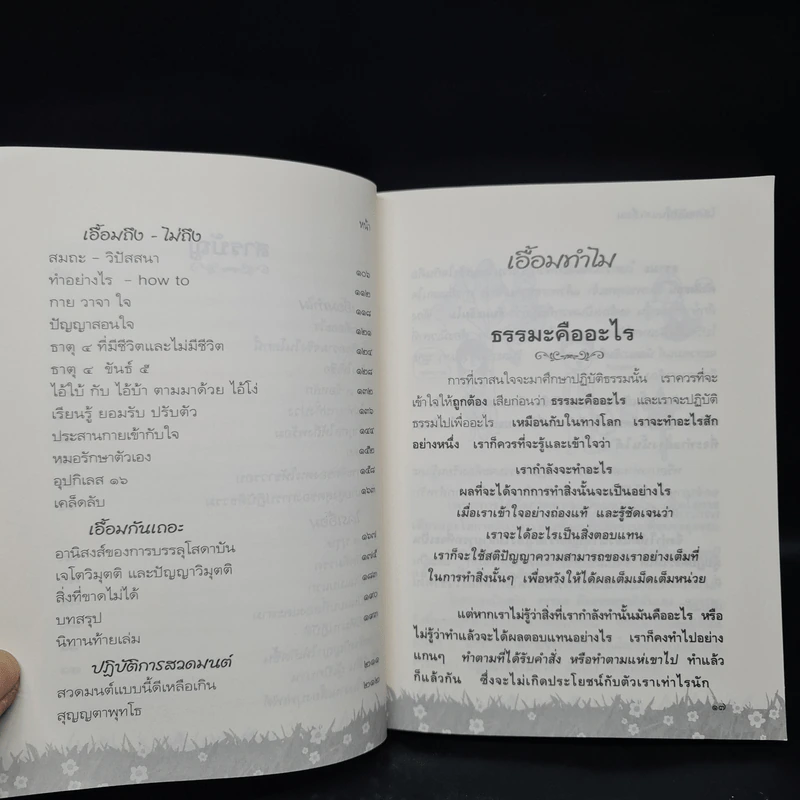 หน้า
เอื้อมถึง - ไม่ถึง
สมถะ – วิปัสสนา ๑๐๖
ทำอย่างไร – how to ๑๑๒
กาย วาจา ใจ ๑๑๘
ปัญญาสอนใจ ๑๒๑
ธาตุ ๔ ที่มีชีวิตและไม่มีชีวิต ๑๒๔
ธาตุ ๔ ขันธ์ ๕ ๑๒๘
ไอ้ใบ้ กับ ไอ้บ้า ตามมาด้วย ไอ้โง่ ๑๓๒
เรียนรู้ ยอมรับ ปรับตัว ๑๓๖
ประสานกายเข้ากับใจ ๑๔๔
หมอรักษาตัวเอง ๑๕๒
อุปกิเลส ๑๖ ๑๕๘
เคล็ดลับ ๑๖๓
เอื้อมกันเถอะ
อานิสงส์ของการบรรลุโสดาบัน ๑๖๗
เจโตวิมุตติ และปัญญาวิมุตติ ๑๗๕
สิ่งที่ขาดไม่ได้ ๑๘๓
บทสรุป ๑๙๐
นิทานท้ายเล่ม ๑๙๓
ปฏิบัติการสวดมนต์
สวดมนต์แบบนี้ดีเหลือเกิน ๒๑๑
สุญญตาพุทโธ ๒๑๒
เอื้อมทำไม
ธรรมะคืออะไร
การที่เราสนใจจะมาศึกษาปฏิบัติธรรมนั้น เราควรที่จะ
เข้าใจให้ถูกต้อง เสียก่อนว่า ธรรมะคืออะไร และเราจะปฏิบัติ
ธรรมไปเพื่ออะไร เหมือนกับในทางโลก เราจะทำอะไรสัก
อย่างหนึ่ง เราก็ควรที่จะรู้และเข้าใจว่า
เรากำลังจะทำอะไร
ผลที่จะได้จากการทำสิ่งนั้นจะเป็นอย่างไร
เมื่อเราเข้าใจอย่างถ่องแท้ และรู้ชัดเจนว่า
เราจะได้อะไรเป็นสิ่งตอบแทน
เราก็จะใช้สติปัญญาความสามารถของเราอย่างเต็มที่
ในการทำสิ่งนั้นๆ เพื่อหวังให้ได้ผลเต็มเม็ดเต็มหน่วย
แต่หากเราไม่รู้ว่าสิ่งที่เรากำลังทำนั้นมันคืออะไร หรือ
ไม่รู้ว่าทำแล้วจะได้ผลตอบแทนอย่างไร เราก็คงทำไปอย่าง
แกนๆ ทำตามที่ได้รับคำสั่ง หรือทำตามแห่เขาไป ทำแล้ว
ก็แล้วกัน ซึ่งจะไม่เกิดประโยชน์กับตัวเราเท่าไรนัก
๑๗